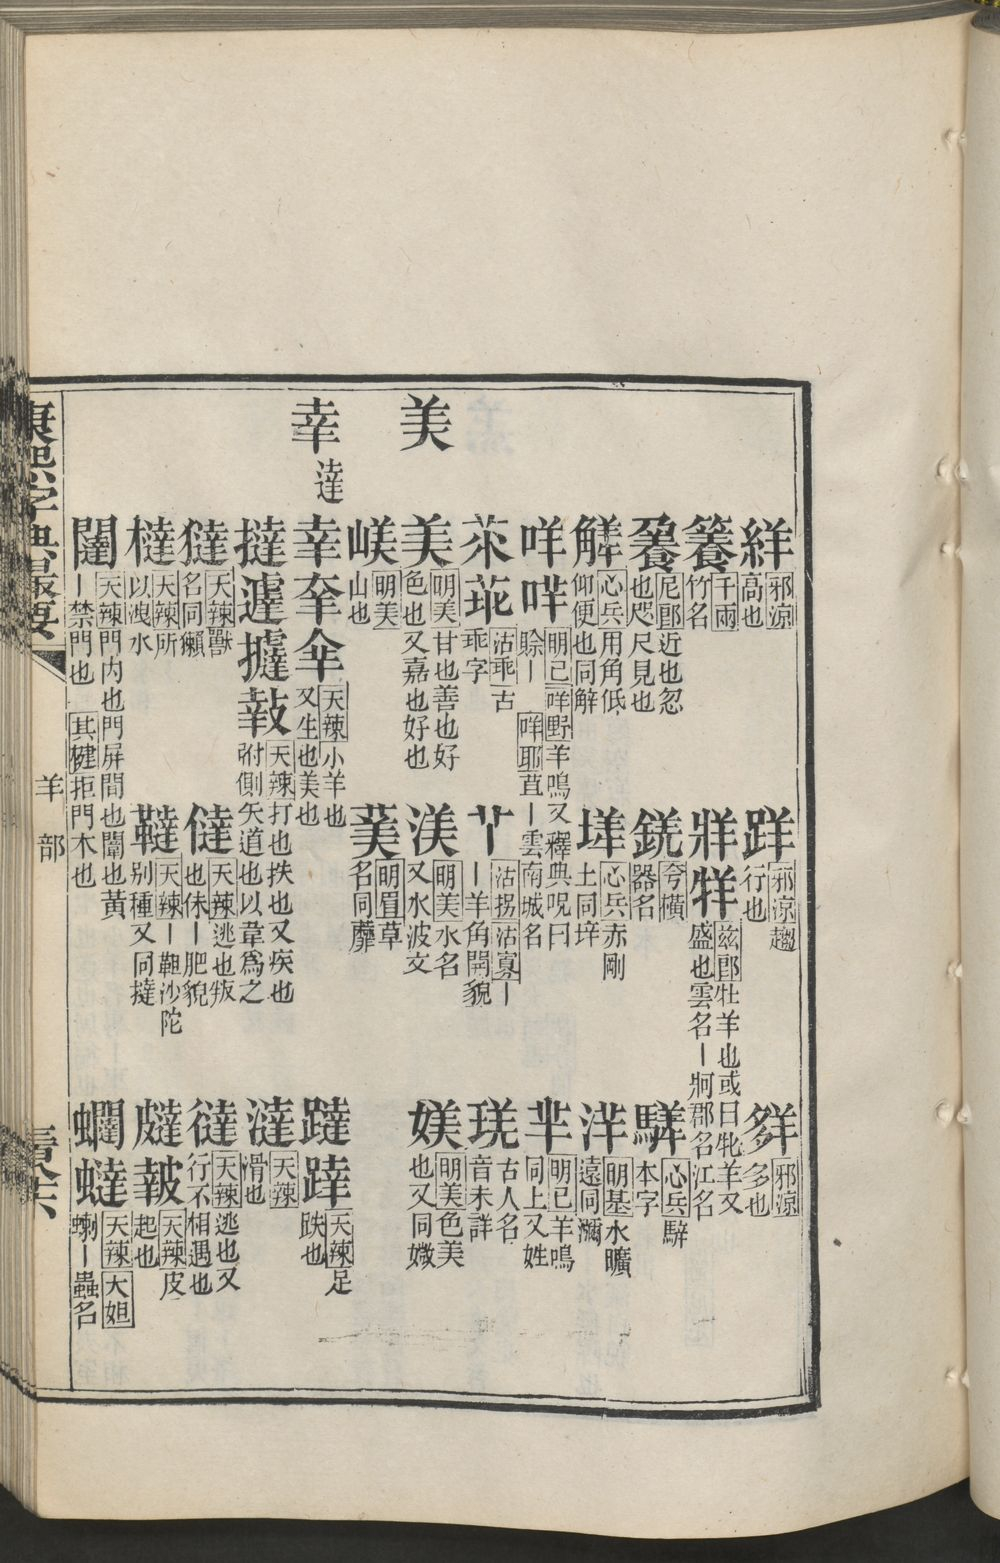 絴 邪涼高也
跘 邪涼趨行也
𡖿 邪涼多也
籑 千兩竹名
牂 𦍩 茲郎牡羊也或曰牝羊又盛也雲名｜牁郡名江名
尼郎近也忽也咫尺見也
夸橫器名
心兵騂本字
觲 心兵用角低仰便也同解
垟 心兵赤剛土同垶
洋 明基水曠遠同瀰
咩 哶 明己咩野羊鳴又釋典呪曰賖｜咩耶苴｜雲南城名
芈 明己羊鳴同上又姓
沽乖古乖字
𦫳 沽拐沽寡｜｜羊角開貌
古人名音未詳
美
美 明美甘也善也好色也又嘉也好也
渼 明美水名又水波文
媄 明美色美也又同媺
嵄 明美山也
葞 明眉草名同蘼
羍 達
羍 全 傘 天辣小羊也又生也美也
躂 跘 天辣足跌也
撻 天辣打也抶也又疾也弣側矢道也以韋爲之
澾 天辣滑也
獺 天辣獸名同獺
㒓 天辣逃也叛也㑄｜肥貌
㣵 天辣逃也又行不相遇也
橽 天辣所以洩水
韃 天辣｜靼沙陀别種又同撻
天辣皮起也
闥 天辣門内也門屏間也闈也黃｜禁門也其健拒門木也
蟽 天辣大妲蝲｜蟲名
康熙字典撮要
羊部